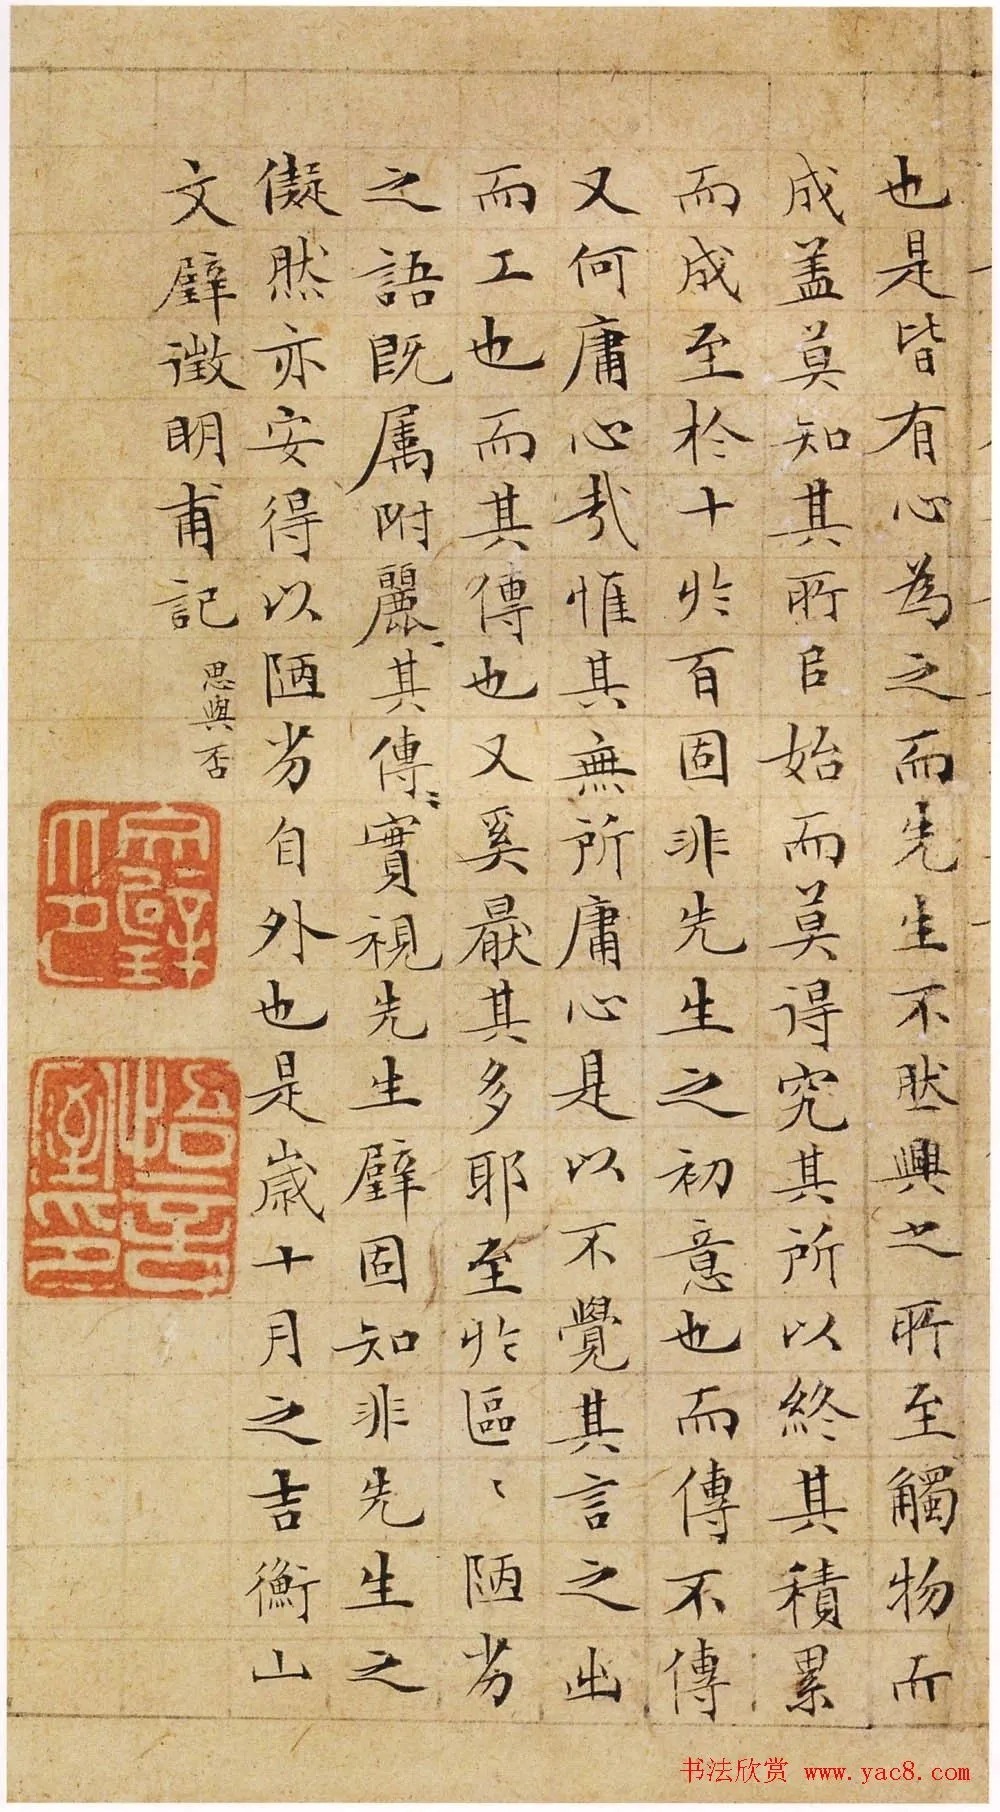 也是皆有心為之而先生不然興之所至觸物而
成盖莫知其所㠯始而莫得究其所以終其積累
而成至於十於百固非先生之初意也而傳不傳
又何庸心哉惟其無所庸心是以不覺其言之出
而工也而其傳也又奚厭其多耶至於區〻陋劣
之語既属附麗〻其傳〻實視先生璧固知非先生之
儗然亦安得以陋劣自外也是歲十月之吉衡山
文璧徵明甫記
思與否
悟言室印
书法欣赏 www.yac8.com